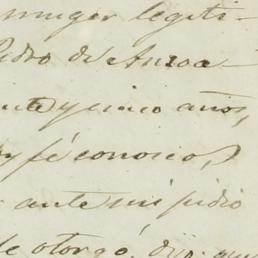 muger legiti-
Pedro de Anzoa
nte y cinco años,
oy fé conosco,
ante mi pidio
le otorgó, dijo que